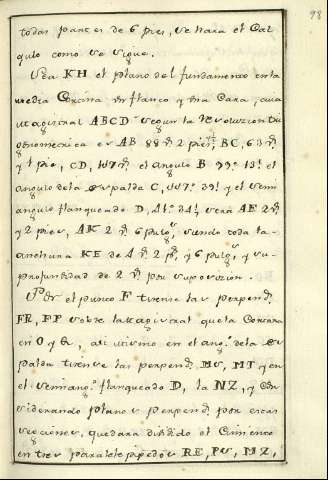 98
todas partes de 6 pies, se hara el Cal
qulo como se sigue.
Sea KH el plano del fundamento en la
media Cortina un flanco y una Cara, cuia
magistral ABCD segun la Resolucion tri
gonometrica es AB 88 2 pies BC, 63
y 1 pie, CD, 147 el angulo B 99.° 13.' el
angulo de la espalda C, 117.° 39.' y el semi
angulo flanqueado D, 41.° 34.' sera AE 2
y 2 pies, AK 2 6 pulg.s, siendo toda la
anchura KE de 4 2 p.s y 6 pulg.s, y su
profundidad de 2 por suposizion.
Por el punto F tirense las perpend.s
FR, FP sobre la magistral que la Cortara
en O y Q, asi mismo en el ang.° de la es
palda tirense las perpend.s MS, MT y en
el semiang.° flanqueado D, la NZ, y con
siderando planos perpend.s por estas
secciones, quedara dividido el Cimiento
en tres paralelepipedos RE, PS, MZ,